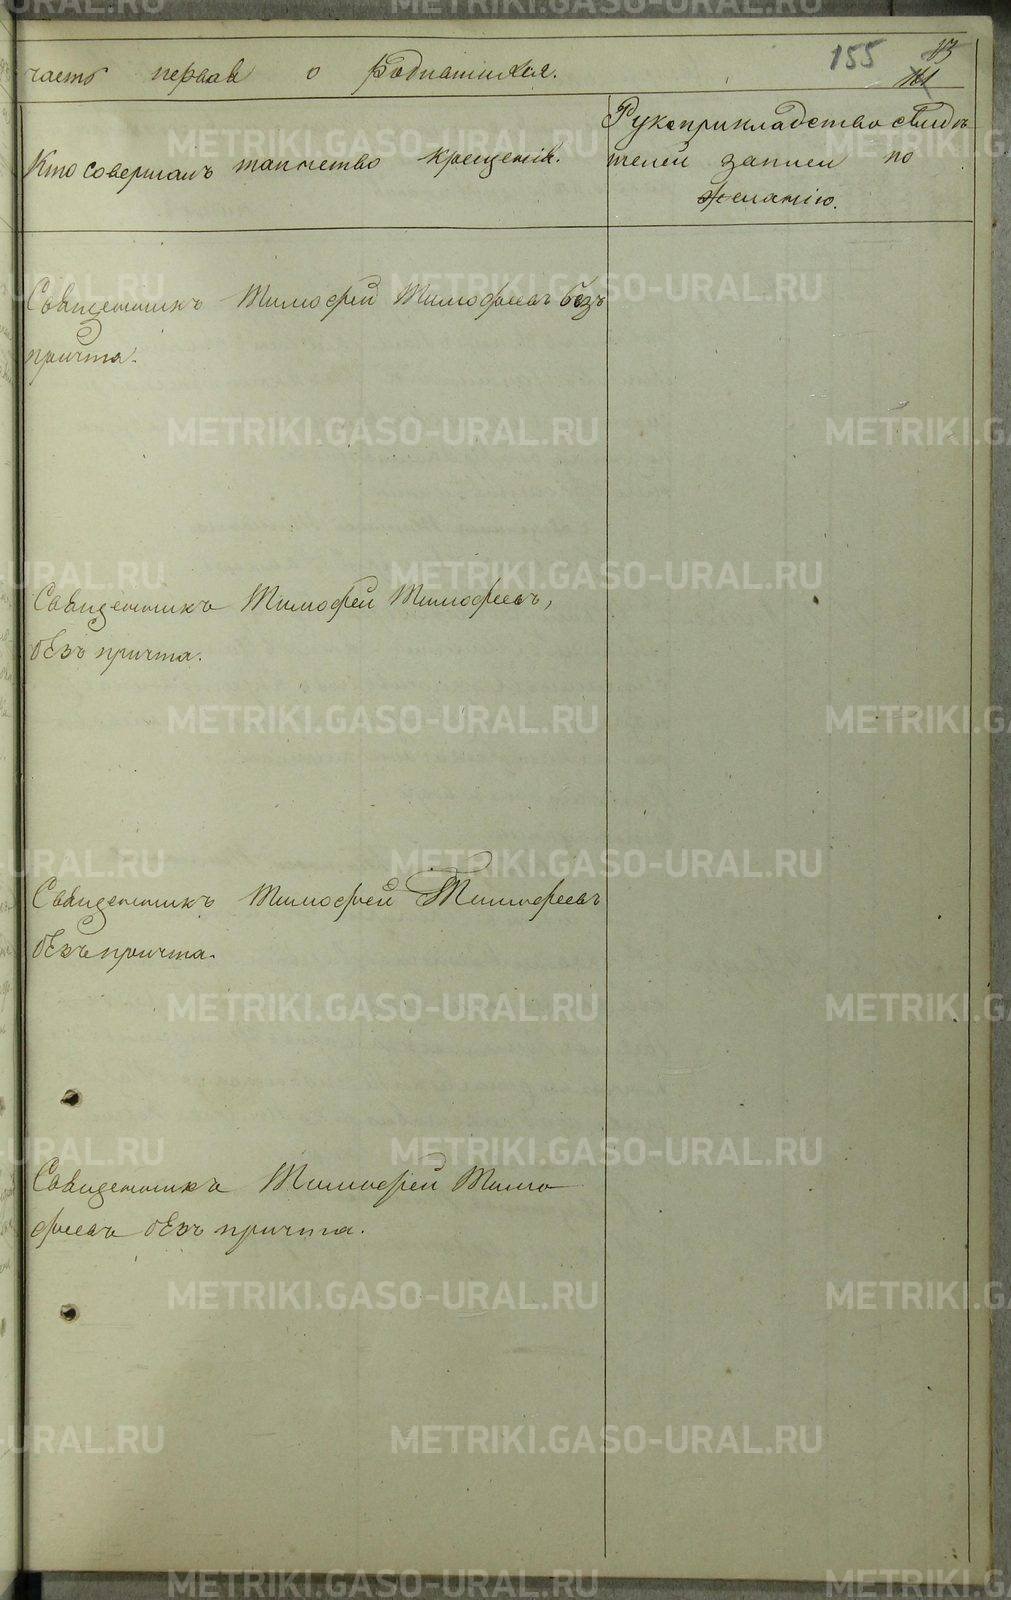 155 13
часть первая о Родившихся.
Кто совершалъ таинство крещенія.
Рукоприкладство свидѣ
телей записи по
желанію.
Священникъ Тимофей Тимофеевъ безъ
причта.
Священникъ Тимофей Тимофеевъ,
безъ причта.
Священникъ Тимофей Тимофеевъ
безъ причта.
Священникъ Тимофей Тимо
феевъ безъ причта.
METRIKI.GASO-URAL.RU